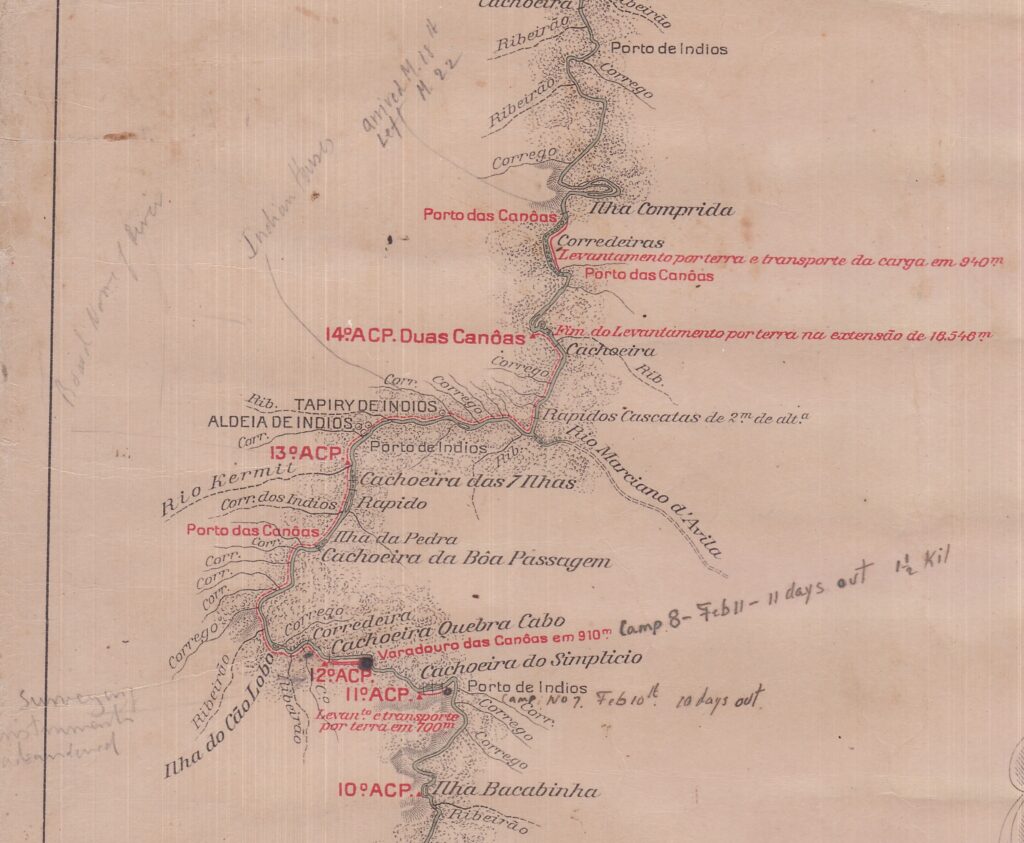 Cachoeira
Ribeirão
Ribeirão
Porto de Indios
Corrego
Ribeirão
arrived M. 18th
Left M. 22
Corrego
Indian Houses
Ilha Comprida
Porto das Canôas
Corredeiras
Levantamento por terra e transporte da carga em 940m
Porto das Canôas
14º ACP. Duas Canôas
Fim do Levantamento por terra na extensão de 16.546m
Cachoeira
Corrego
Rib.
Corr.
Corrego
Rib.
TAPIRY DE INDIOS
Rapidos Cascatas de 2m de alt.a
ALDEIA DE INDIOS
Corr.
Porto de Indios
Rib.
Rio Marciano d'Avila
13º ACP.
Rio Kermit
Cachoeira das 7 Ilhas
Corr. dos Indios
Rapido
Porto das Canôas
Corr.
Ilha da Pedra
Cachoeira da Bôa Passagem
Corr.
Corr.
Corr.
Corrego
Corrego
Corredeira
Cachoeira Quebra Cabo
Varadouro das Canôas em 910m
Camp. 8 - Feb 11 - 11 days out 1½ Kil
Cachoeira do Simplicio
12º ACP.
11º ACP.
Porto de Indios
Camp No 7. Feb 10th. 10 days out.
Ribeirão
Ribeirão
Co
Corr.
Corrego
Levan.to e transporte
por terra em 700m
Ilha do Cão Lobo
Corrego
Surveying
instruments
abandoned
10º ACP.
Ilha Bacabinha
Ribeirão